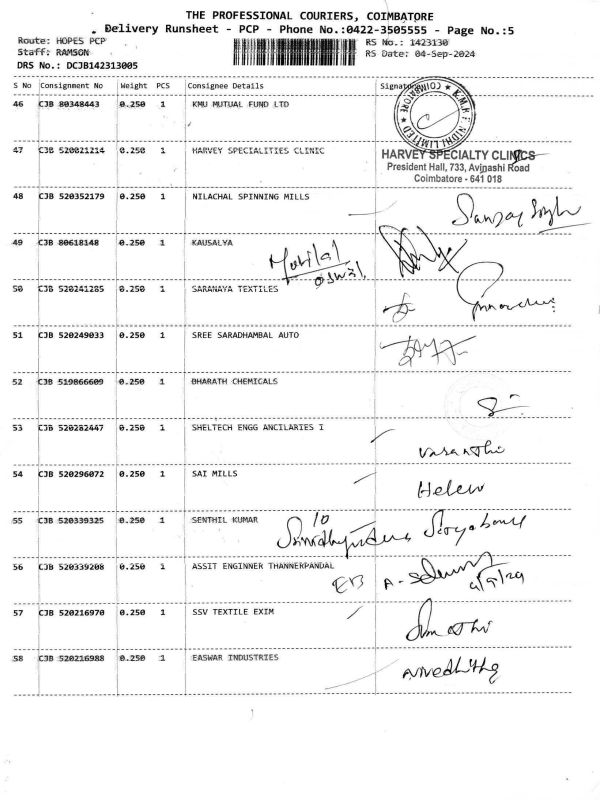 THE PROFESSIONAL COURIERS, COIMBATORE
Delivery Runsheet - PCP - Phone No.:0422-3505555 - Page No.:5
Route: HOPES PCP RS No.: 1423130
Staff: RAMSON RS Date: 04-Sep-2024
DRS No.: DCJB142313005
S No Consignment No Weight PCS Consignee Details Signature
46 CJB 80348443 0.250 1 KMU MUTUAL FUND LTD
47 CJB 520021214 0.250 1 HARVEY SPECIALITIES CLINIC
HARVEY SPECIALTY CLINICS
President Hall, 733, Avinashi Road
Coimbatore - 641 018
48 CJB 520352179 0.250 1 NILACHAL SPINNING MILLS
Sanjay Singh
49 CJB 80618148 0.250 1 KAUSALYA
50 CJB 520241285 0.250 1 SARANAYA TEXTILES
51 CJB 520249033 0.250 1 SREE SARADHAMBAL AUTO
52 CJB 519866609 0.250 1 BHARATH CHEMICALS
53 CJB 520282447 0.250 1 SHELTECH ENGG ANCILARIES I
Vasanthi
54 CJB 520296072 0.250 1 SAI MILLS
Helen
55 CJB 520339325 0.250 1 SENTHIL KUMAR
56 CJB 520339208 0.250 1 ASSIT ENGINNER THANNERPANDAL
EB
57 CJB 520216970 0.250 1 SSV TEXTILE EXIM
58 CJB 520216988 0.250 1 EASWAR INDUSTRIES
Nivedhitha